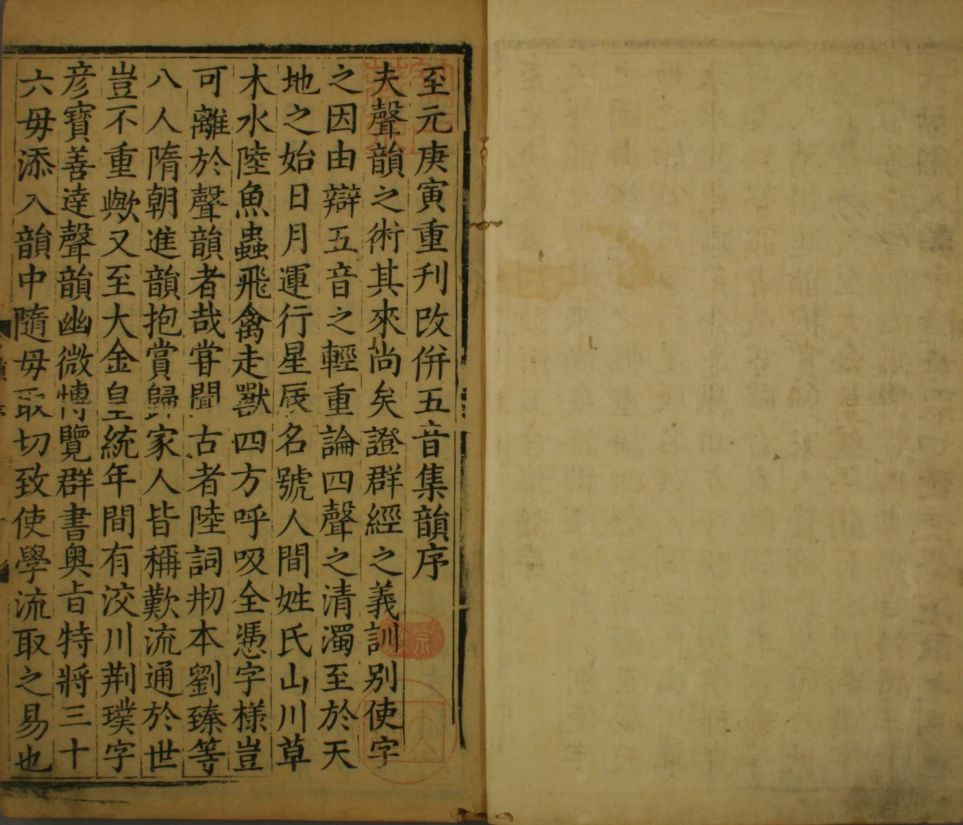 至元庚寅重刊改併五音集韻序
夫聲韻之術其來尚矣證群經之義訓別使字
之因由辯五音之輕重論四聲之清濁至於天
地之始日月運行星辰名號人間姓氏山川草
木水陸魚蟲飛禽走獸四方呼吸全憑字樣豈
可離於聲韻者哉甞聞古者陸詞刱本劉臻等
八人隋朝進韻抱賞歸家人皆稱歎流通於世
豈不重歟又至大金皇統年間有洨川荆璞字
彦寶善達聲韻幽微愽覽群書奥旨特將三十
六毋添入韻中隨毋取切致使學流取之易也